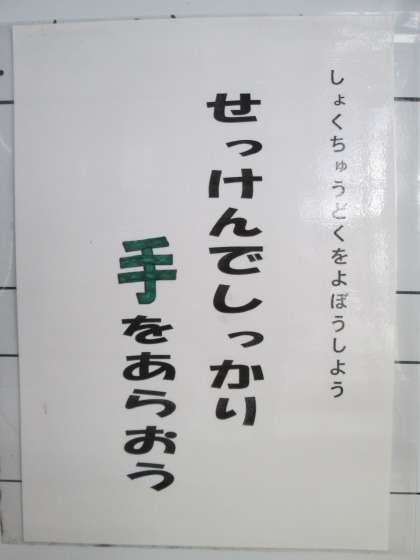 しょくちゅうどくをよぼうしよう
せっけんでしっかり
手をあらおう